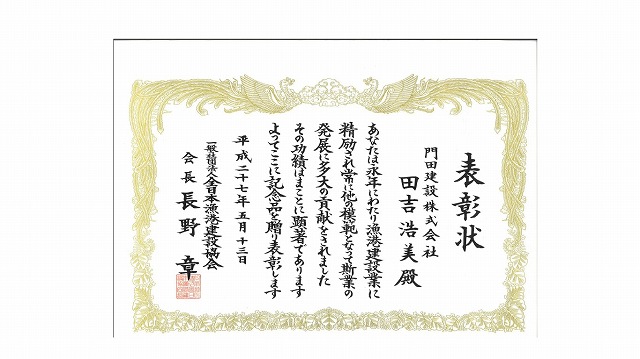 表彰状
門田建設株式会社
田吉浩美殿
あなたは永年にわたり漁港建設業に
精励され常に他の模範となって斯業の
発展に多大の貢献をされました
その功績はまことに顕著であります
よってここに記念品を贈り表彰します
平成二十七年五月十三日
一般社団法人全日本漁港建設協会
会長長野章